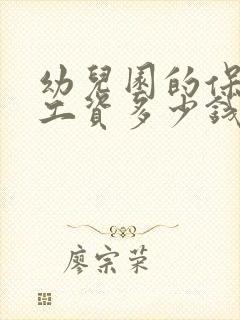 幼兒園的保
工資多少錢
廖宗荣